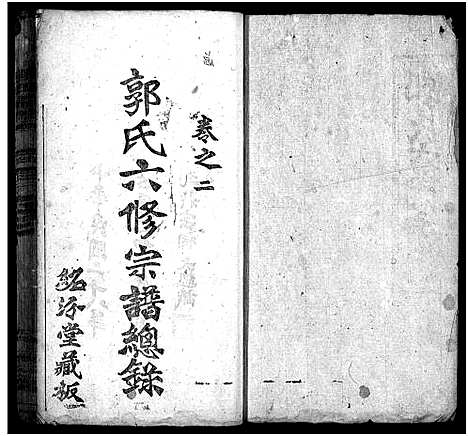 卷之二
郭氏六修宗譜總錄
銘汾堂藏板